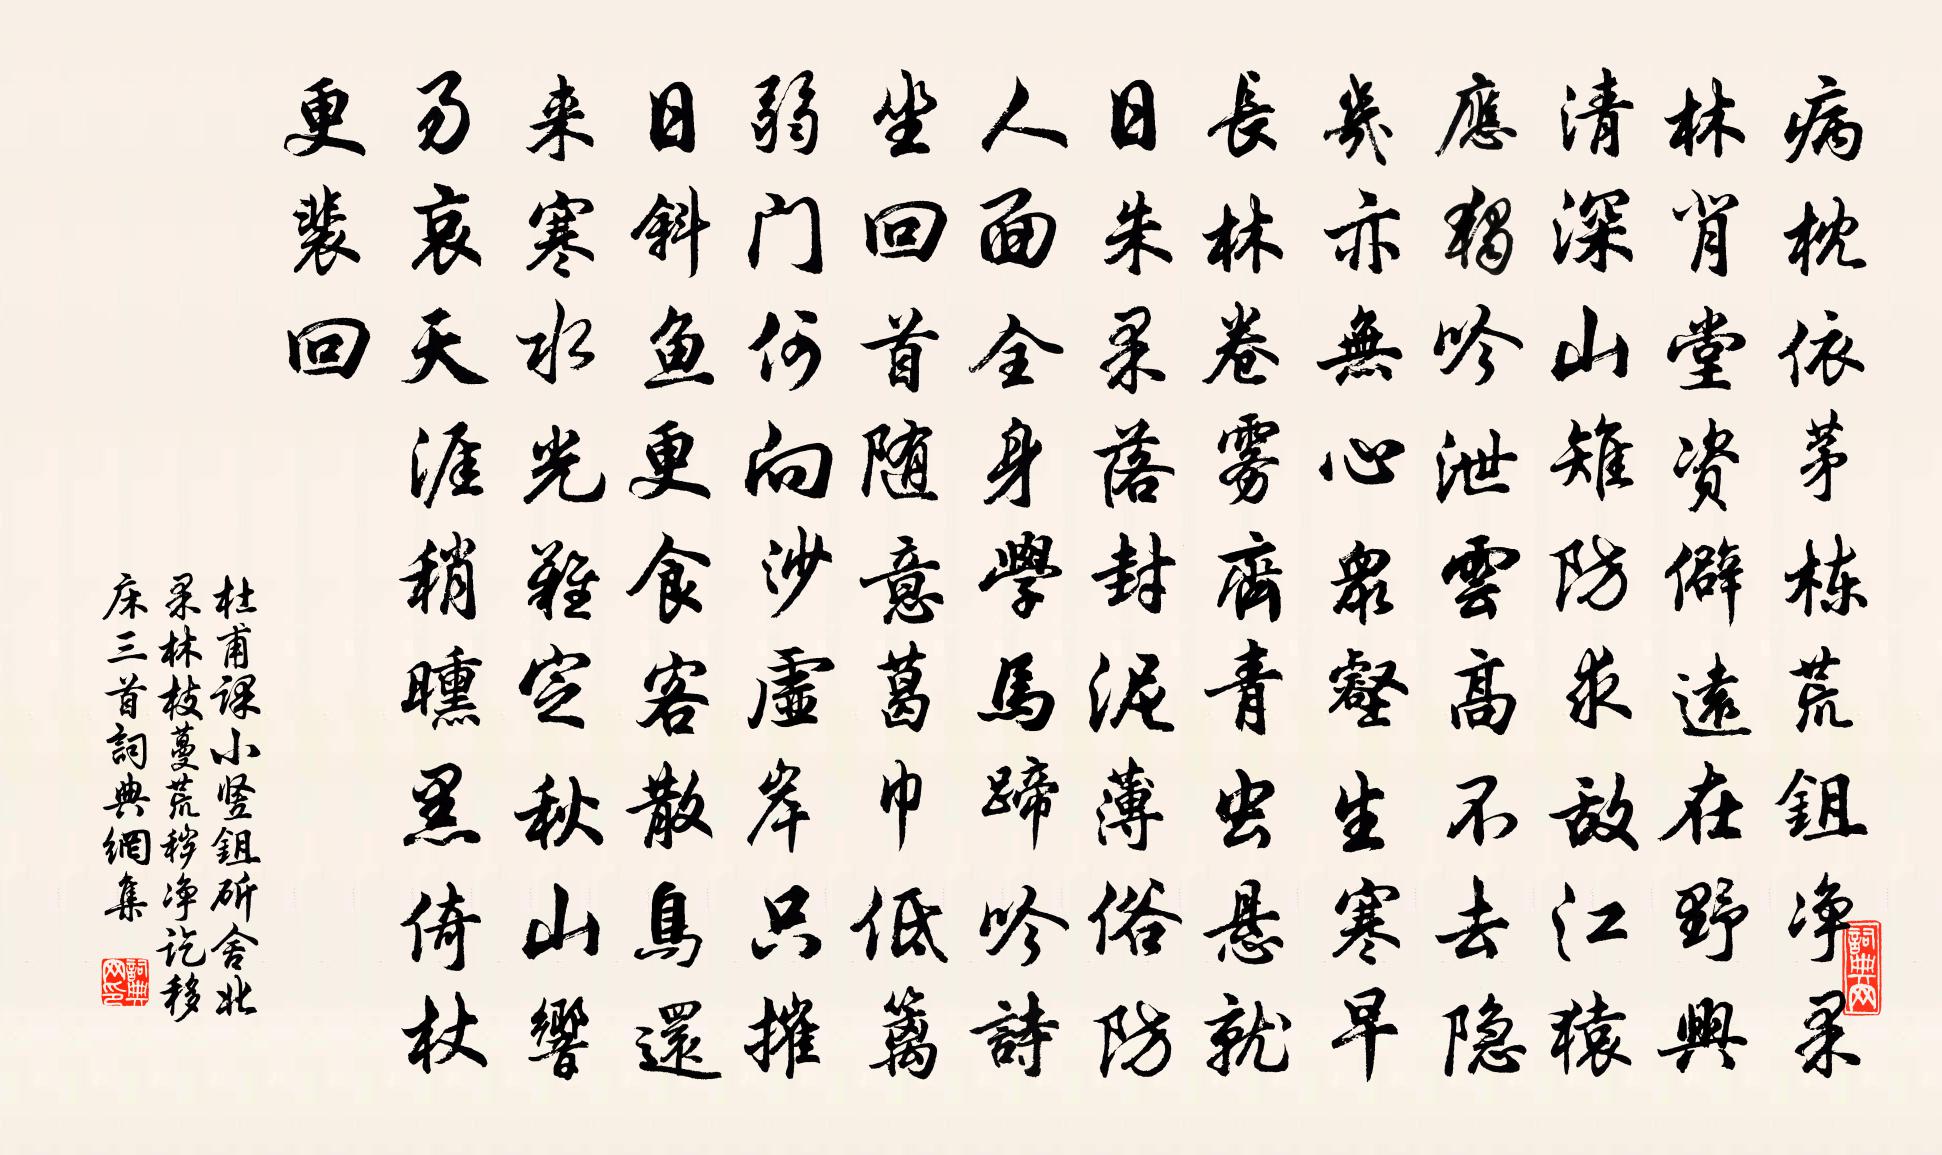 病枕依茅栋荒鉏净果
林背堂资僻遠在野興
清深山雉防求敌江猿
應獨吟泄雲高不去隐
幾亦無心眾壑生寒早
長林卷雾齊青虫悬就
日朱果落封泥薄俗防
人面全身學馬蹄吟詩
坐回首随意葛巾低篱
弱门何向沙虚岸只摧
日斜鱼更食客散鳥還
来寒水光難定秋山響
易哀天涯稍曛黑倚杖
更裴回
杜甫课小竖鉏斫舍北
果林枝蔓荒秽净讫移
床三首詞典網集
詞典网
詞典网印